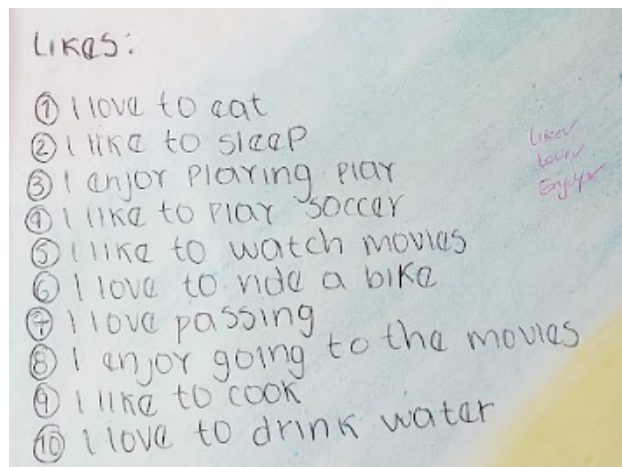 Likes:
① I love to eat
② I like to sleep
③ I enjoy playing play
④ I like to play soccer
⑤ I like to watch movies
⑥ I love to ride a bike
⑦ I love passing
⑧ I enjoy going to the movies
⑨ I like to cook
⑩ I love to drink water
Like✓
Love✓
Enjoy✓